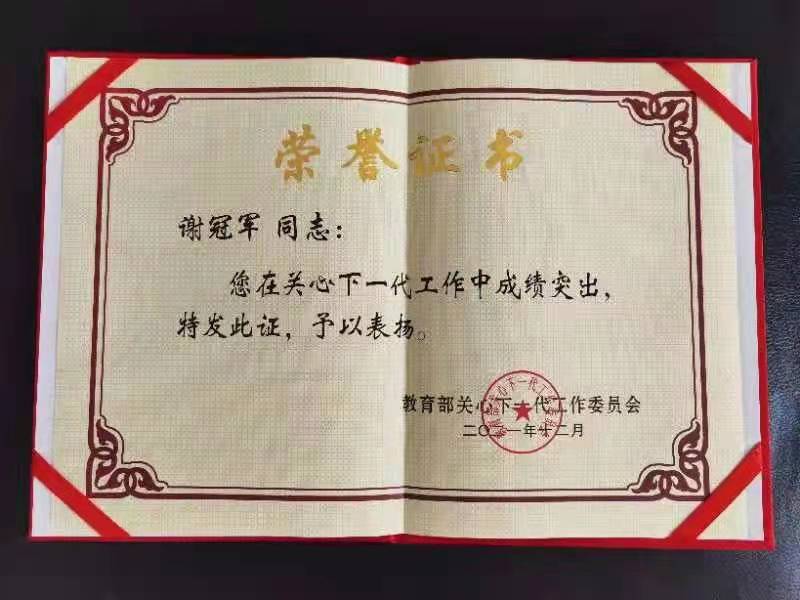 荣誉证书
谢冠军 同志：
您在关心下一代工作中成绩突出，
特发此证，予以表扬。
教育部关心下一代工作委员会
二〇二一年十二月